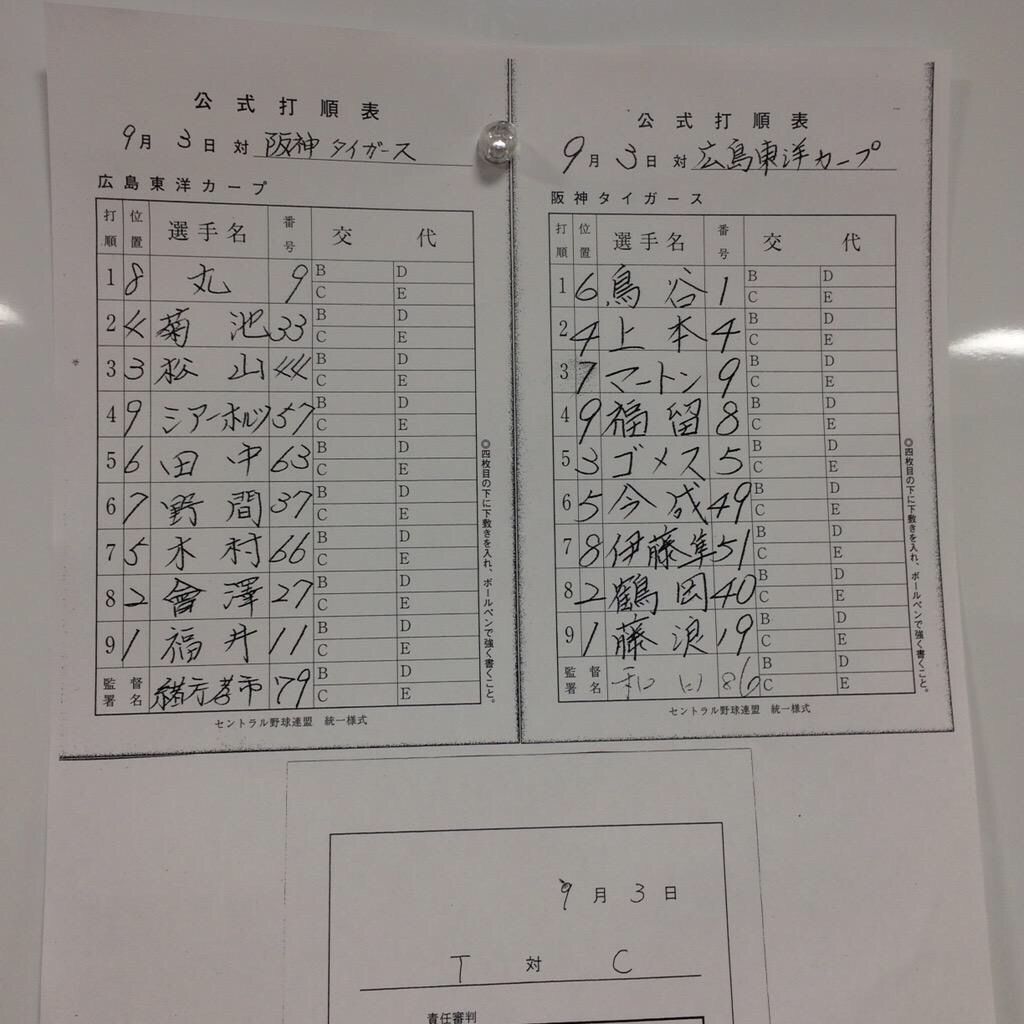 公式打順表
9月3日対 阪神タイガース
広島東洋カープ
打順 位置 選手名 番号 交代
1 8 丸 9 B D C E
2 4 菊池 33 B D C E
3 3 松山 44 B D C E
4 9 シアーホルツ 57 B D C E
5 6 田中 63 B D C E
6 7 野間 37 B D C E
7 5 木村 66 B D C E
8 2 會澤 27 B D C E
9 1 福井 11 B D C E
監督署名 緒方孝市 79 B D C E
セントラル野球連盟 統一様式
◎四枚目の下に下敷きを入れ、ボールペンで強く書くこと。
公式打順表
9月3日対 広島東洋カープ
阪神タイガース
打順 位置 選手名 番号 交代
1 6 鳥谷 1 B D C E
2 4 上本 4 B D C E
3 7 マートン 9 B D C E
4 9 福留 8 B D C E
5 3 ゴメス 5 B D C E
6 5 今成 49 B D C E
7 8 伊藤隼 51 B D C E
8 2 鶴岡 40 B D C E
9 1 藤浪 19 B D C E
監督署名 和田 86 B D C E
セントラル野球連盟 統一様式
◎四枚目の下に下敷きを入れ、ボールペンで強く書くこと。
9月3日
T 対 C
責任審判